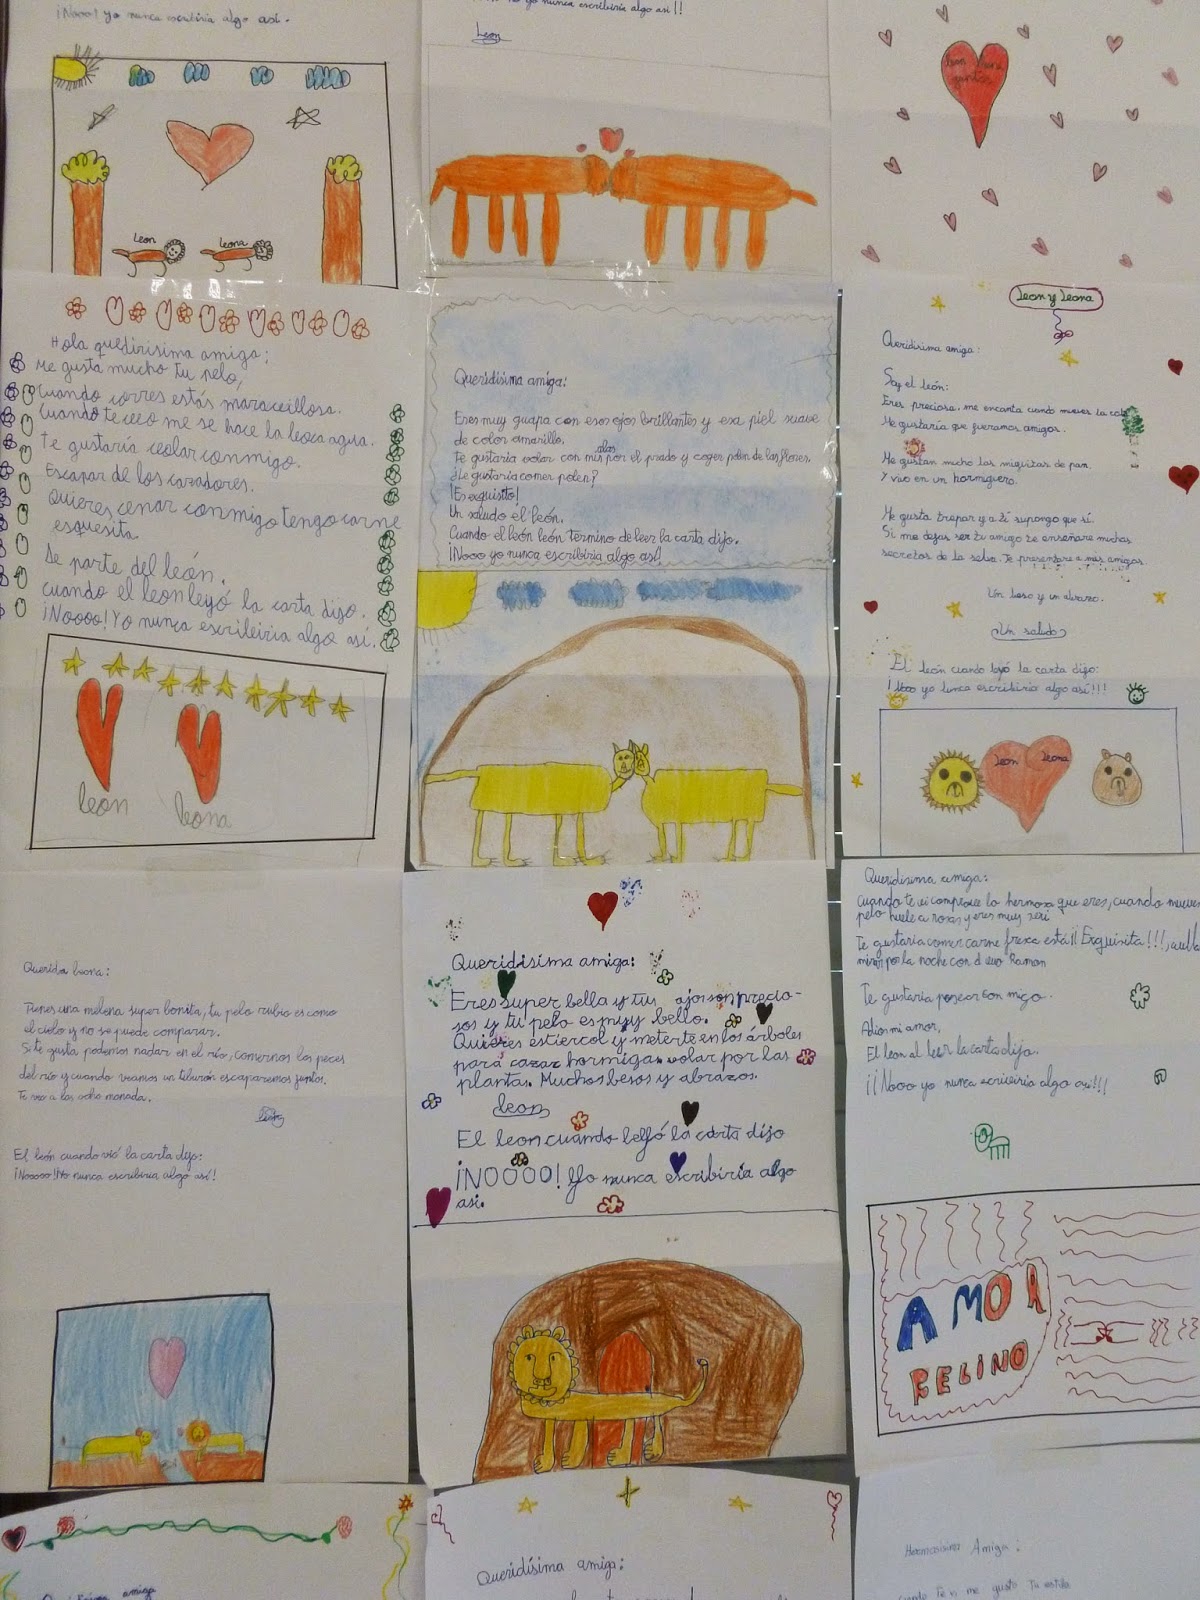 ¡Nooo! Yo nunca escribiria algo asi.
leon
leona
yo nunca escribiria algo asi!!
Leon
Hola queridirisima amiga:
Me gusta mucho tu pelo,
cuando corres estás maravillosa.
Cuando te veo me se hace la boca agua.
Te gustaría volar conmigo.
Escapar de los cazadores.
Quieres cenar conmigo tengo carne
esquesita.
De parte del león.
cuando el leon leyó la carta dijo.
¡Noooo! Yo nunca escribiria algo así.
leon
leona
Queridísima amiga:
Eres muy guapa con esos ojos brillantes y esa piel suave
de color amarillo.
alas
te gustaria volar con mis por el prado y coger polen de las flores.
¿Le gustaría comer polen?
¡Es exquisito!
Un saludo él león.
Cuando el león león término de leer la carta dijo.
¡Nooo yo nunca escribiria algo así.
Leon y Leona
Queridisima amiga:
Soy el león:
Eres preciosa, me encanta cuando mueves la cola
Me gustaría que fueramos amigos.
Me gustan mucho las miguitas de pan.
Y vivo en un hormiguero.
Me gusta trepar y a tí supongo que sí.
Si me dejas ser tu amigo te enseñare muchos
secretos de la selva. Te presentare a mis amigos.
Un beso y un abrazo.
Un saludo
El león cuando leyó la carta dijo:
yo nunca escribiria algo así!!!
leon
leona
Querida leona:
Tienes una melena super bonita, tu pelo rubio es como
el cielo y no se puede comparar.
Si te gusta podemos nadar en el río, comernos los peces
del río y cuando veamos un tiburón escaparemos juntos.
Te veo a las ocho monada.
El león cuando vió la carta dijo:
¡Noooo! Yo nunca escribiria algo así!
Queridísima amiga:
Eres super bella y tus ojos son precio-
sos y tu pelo es muy bello.
Quieres estiercol y meterte en los árboles
para cazar hormigas volar por las
planta. Muchos besos y abrazos.
leon
El leon cuando leyó la carta dijo
¡NOOOO! Yo nunca escribiria algo
asi.
Queridisima amiga:
cuando te vi comprove lo hermosa que eres, cuando mueves
pelo huele a rosas y eres muy
Te gustaria comer carne fresca está ¡¡Exquisita!!!,
por la noche con Raman
Te gustaria pasear con migo.
Adios mi amor.
El leon al leer la carta dijo.
¡¡Nooo yo nunca escribiria algo asi!!!
AMOR
FELINO
amiga
Queridísima amiga:
Hermosisima Amiga:
me gusto Tu